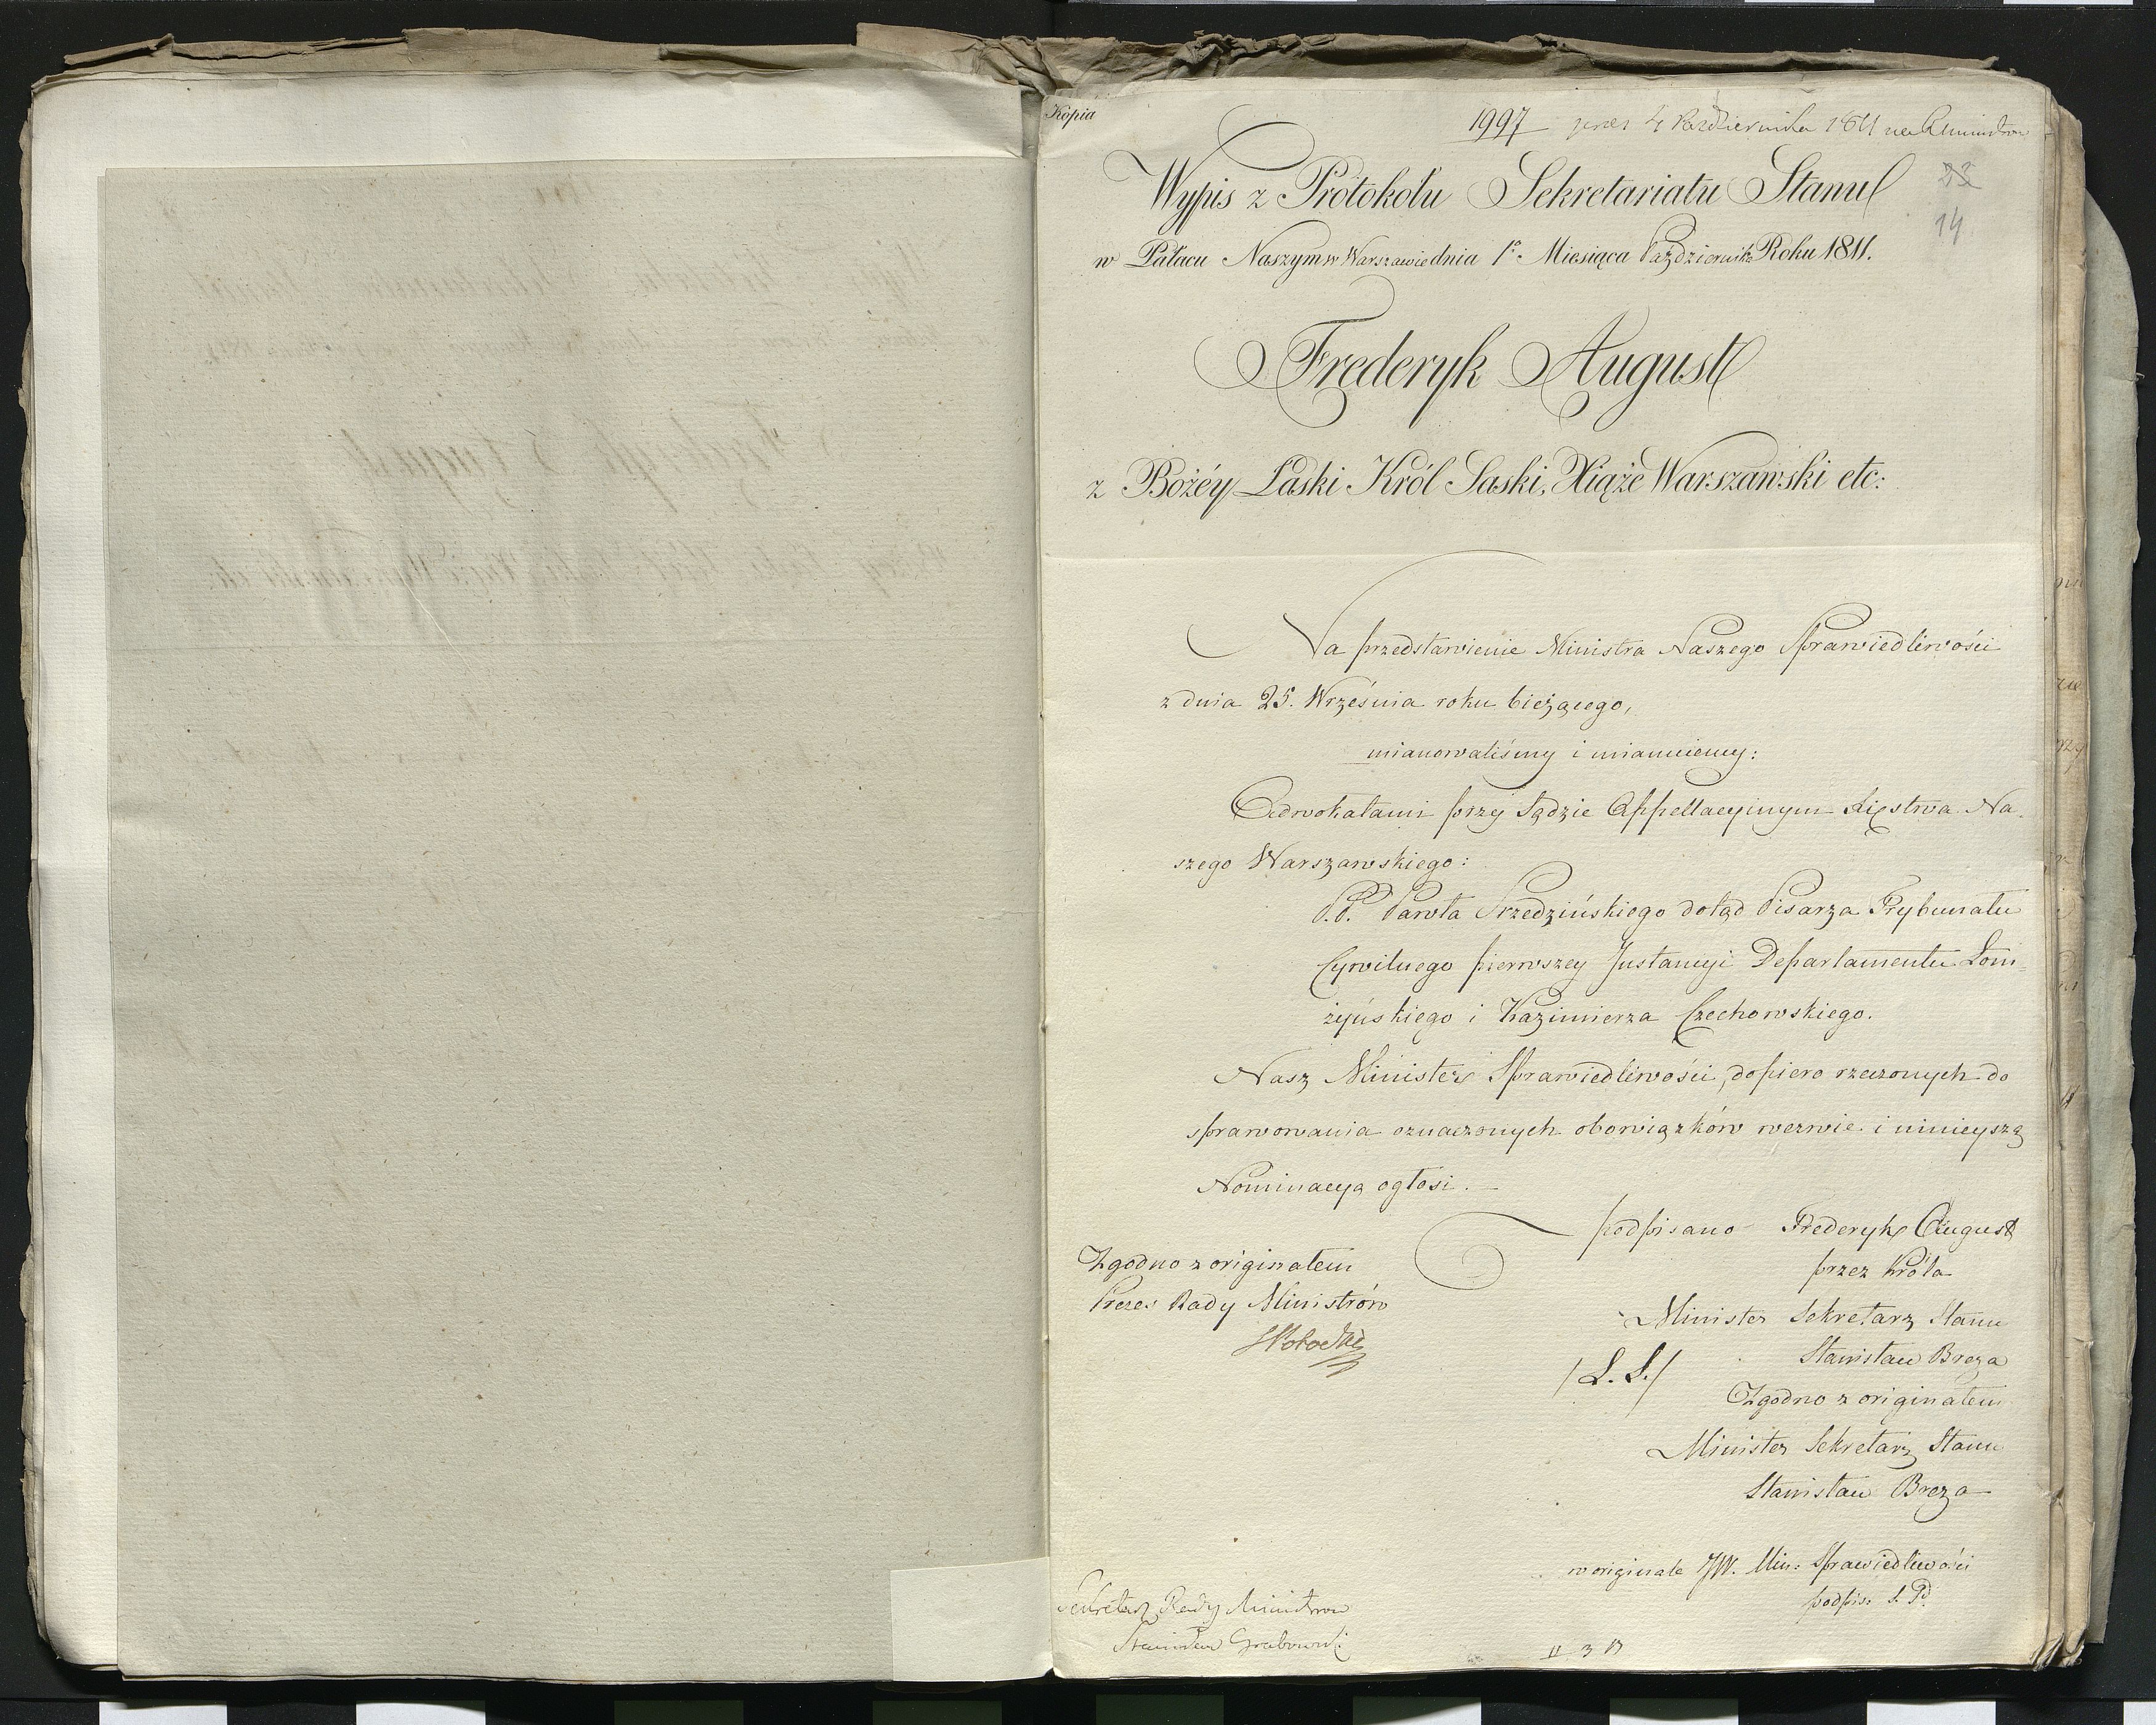 Kopia
1997 prez 4 Października 1811 na R Ministrow
Wypis z Protokołu Sekretariatu Stanu
23
14
w Pałacu Naszym w Warszawie dnia 1º Miesiąca Października Roku 1811.
Frederyk August
z Bożéy Łaski Król Saski, Xiąże Warszawski etc:
Na przedstawienie Ministra Naszego Sprawiedliwości
z dnia 25. Września roku bieżącego,
mianowaliśmy i mianuiemy:
Adwokatami przy Sądzie Appellacyinym Xięstwa Na-
szego Warszawskiego:
P.P. Pawła Srzedzińskiego dotąd Pisarza Trybunału
Cywilnego pierwszey Instancyi Departamentu Łom-
żyńskiego i Kazimierza Czechowskiego.
Nasz Minister Sprawiedliwości, dopiero rzeczonych do
sprawowania oznaczonych obowiązków wezwie i ninieyszą
Nominacyą ogłosi. —
podpisano Frederyk August
przez Króla
Minister Sekretarz Stanu
Stanisław Breza
/L.S./
Zgodno z originałem
Minister Sekretarz Stanu
Stanisław Breza
Zgodno z originałem
Prezes Rady Ministrów
SPotocki
w originale JW. Min: Sprawiedliwości
podpis:
Sekretarz Rady Ministrow
Stanisław Grabowski